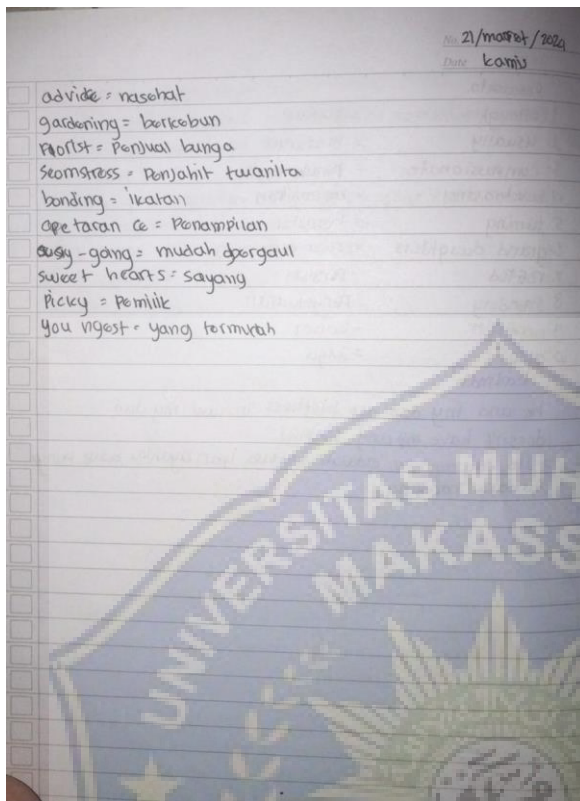 No. 21/maret/2024
Date kamis
advice = nasehat
gardening = berkebun
Florist = Penjual bunga
Seomstress = Penjahit twanita
bonding = ikatan
apetaran ce = Penampilan
easy-going = mudah bergaul
sweet hearts = sayang
Picky = Pemilik
you ngest = yang termudah
UNIVERSITAS MUH
MAKASS